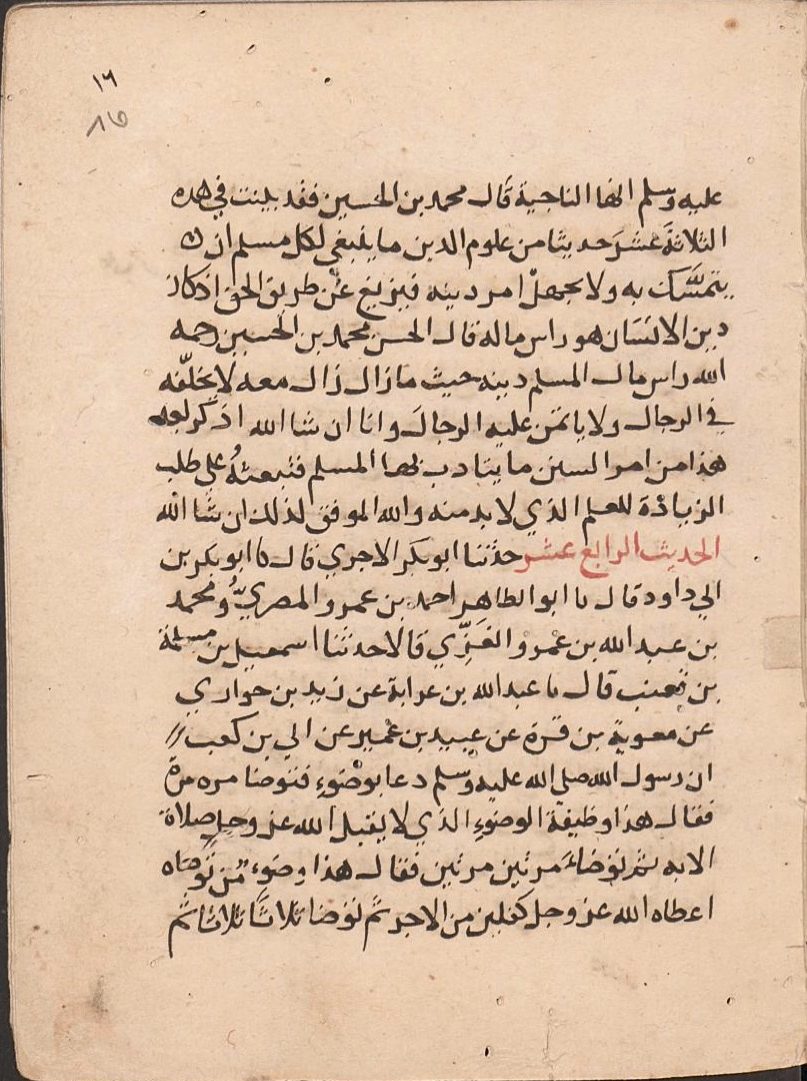 ١٦
عليه وسلم انها الناجية قال محمد بن الحسين فقد بينت في هذه
الثلاثةَ عشرَ حديثا من علوم الدين ما ينبغي لكل مسلم ان
يتمسَّك به ولا يجهل امر دينه فيزيغ عن طريق الحق اذ كان
دين الانسان هو راس ماله قال الحسن محمد بن الحسين رحمه
الله راس مال المسلم دينه حيث ما زال زال معه لا يخلّفه
في الرحال ولا ياتمن عليه الرجالَ وانا ان شا الله اذكر بعد
هذا من امر السنن ما يتادب بها المسلم فتبعثهُ على طلب
الزيادة للعلم الذي لا بد منه والله الموفق لذلك ان شا الله
الحديث الرابع عشر حدثنا ابو بكر الاجري قال نا ابو بكر بن
ابي داود قال نا ابو الطاهر احمد بن عمرو المصريُّ ومحمد
بن عبد الله بن عمرو الغَزِّي قالا حدثنا اسمعيل بن مسلمة
بن قعنب قال نا عبد الله بن عرابة عن زيد بن حواري
عن معوية بن قرة عن عبيد بن عُمير عن ابي بن كعب
ان رسول الله صلى الله عليه وسلم دعا بوضوءٍ فتوضا مره مرة
فقال هذا وظيفة الوضوءِ الذي لا يقبل الله عز وجل صلاة
الا به ثم توضاءَ مرتين مرتين فقال هذا وضوء من توضاه
اعطاه الله عز وجل كفلين من الاجر ثم توضا ثلاثًا ثلاثا ثم